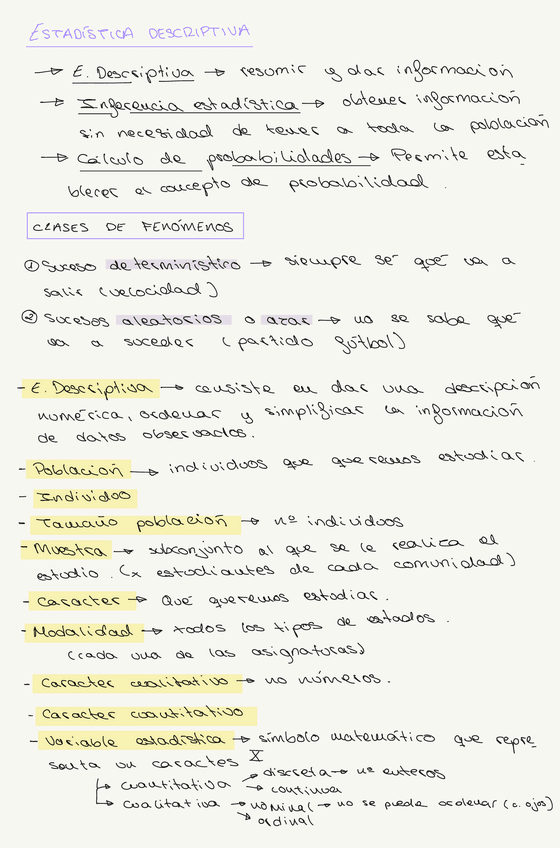 ESTADÍSTICA DESCRIPTIVA
→ E. Descriptiva → resumir y dar información
→ Inferencia estadística → obtener información
sin necesidad de tener a toda la población
→ Cálculo de probabilidades → Permite esta
blecer el concepto de probabilidad.
CLASES DE FENÓMENOS
① Suceso determinístico → siempre sé qué va a
salir (velocidad)
② Sucesos aleatorios o azar → no se sabe qué
va a suceder (partido fútbol)
- E. Descriptiva → consiste en dar una descripción
numérica, ordenar y simplificar la información
de datos observados.
- Población → individuos que queremos estudiar.
- Individuo
- Tamaño población → nº individuos
- Muestra → subconjunto al que se le realiza el
estudio. (x estudiantes de cada comunidad)
- Caracter → Qué queremos estudiar.
- Modalidad → todos los tipos de estados.
(cada una de las asignaturas)
- Caracter cualitativo → no números.
- Caracter cuantitativo
- Variable estadística → símbolo matemático que repre
senta un caracter X
↳ cuantitativa → discreta → nº enteros
→ continua
↳ cualitativa → nominal → no se puede ordenar (c. ojos)
→ ordinal